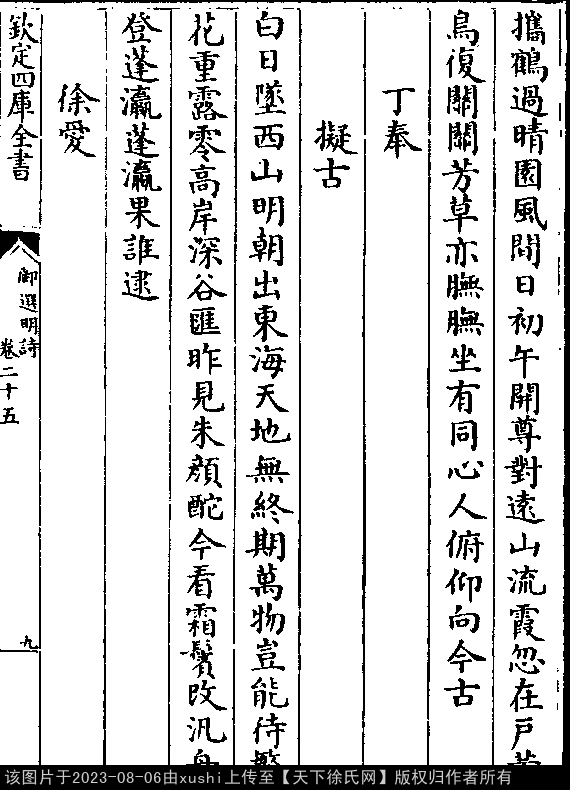 攜鶴過晴園風閒日初午開尊對遠山流霞忽在戸
鳥復關關芳草亦膴膴坐有同心人俯仰向今古
丁奉
擬古
白日墜西山明朝出東海天地無終期萬物豈能待
花重露零高岸深谷匯昨見朱顔酡今看霜鬢改汎
登蓬瀛蓬瀛果誰逮
徐愛
欽定四庫全書
御選明詩
卷二十五
九
该图片于2023-08-06由xushi上传至【天下徐氏网】版权归作者所有